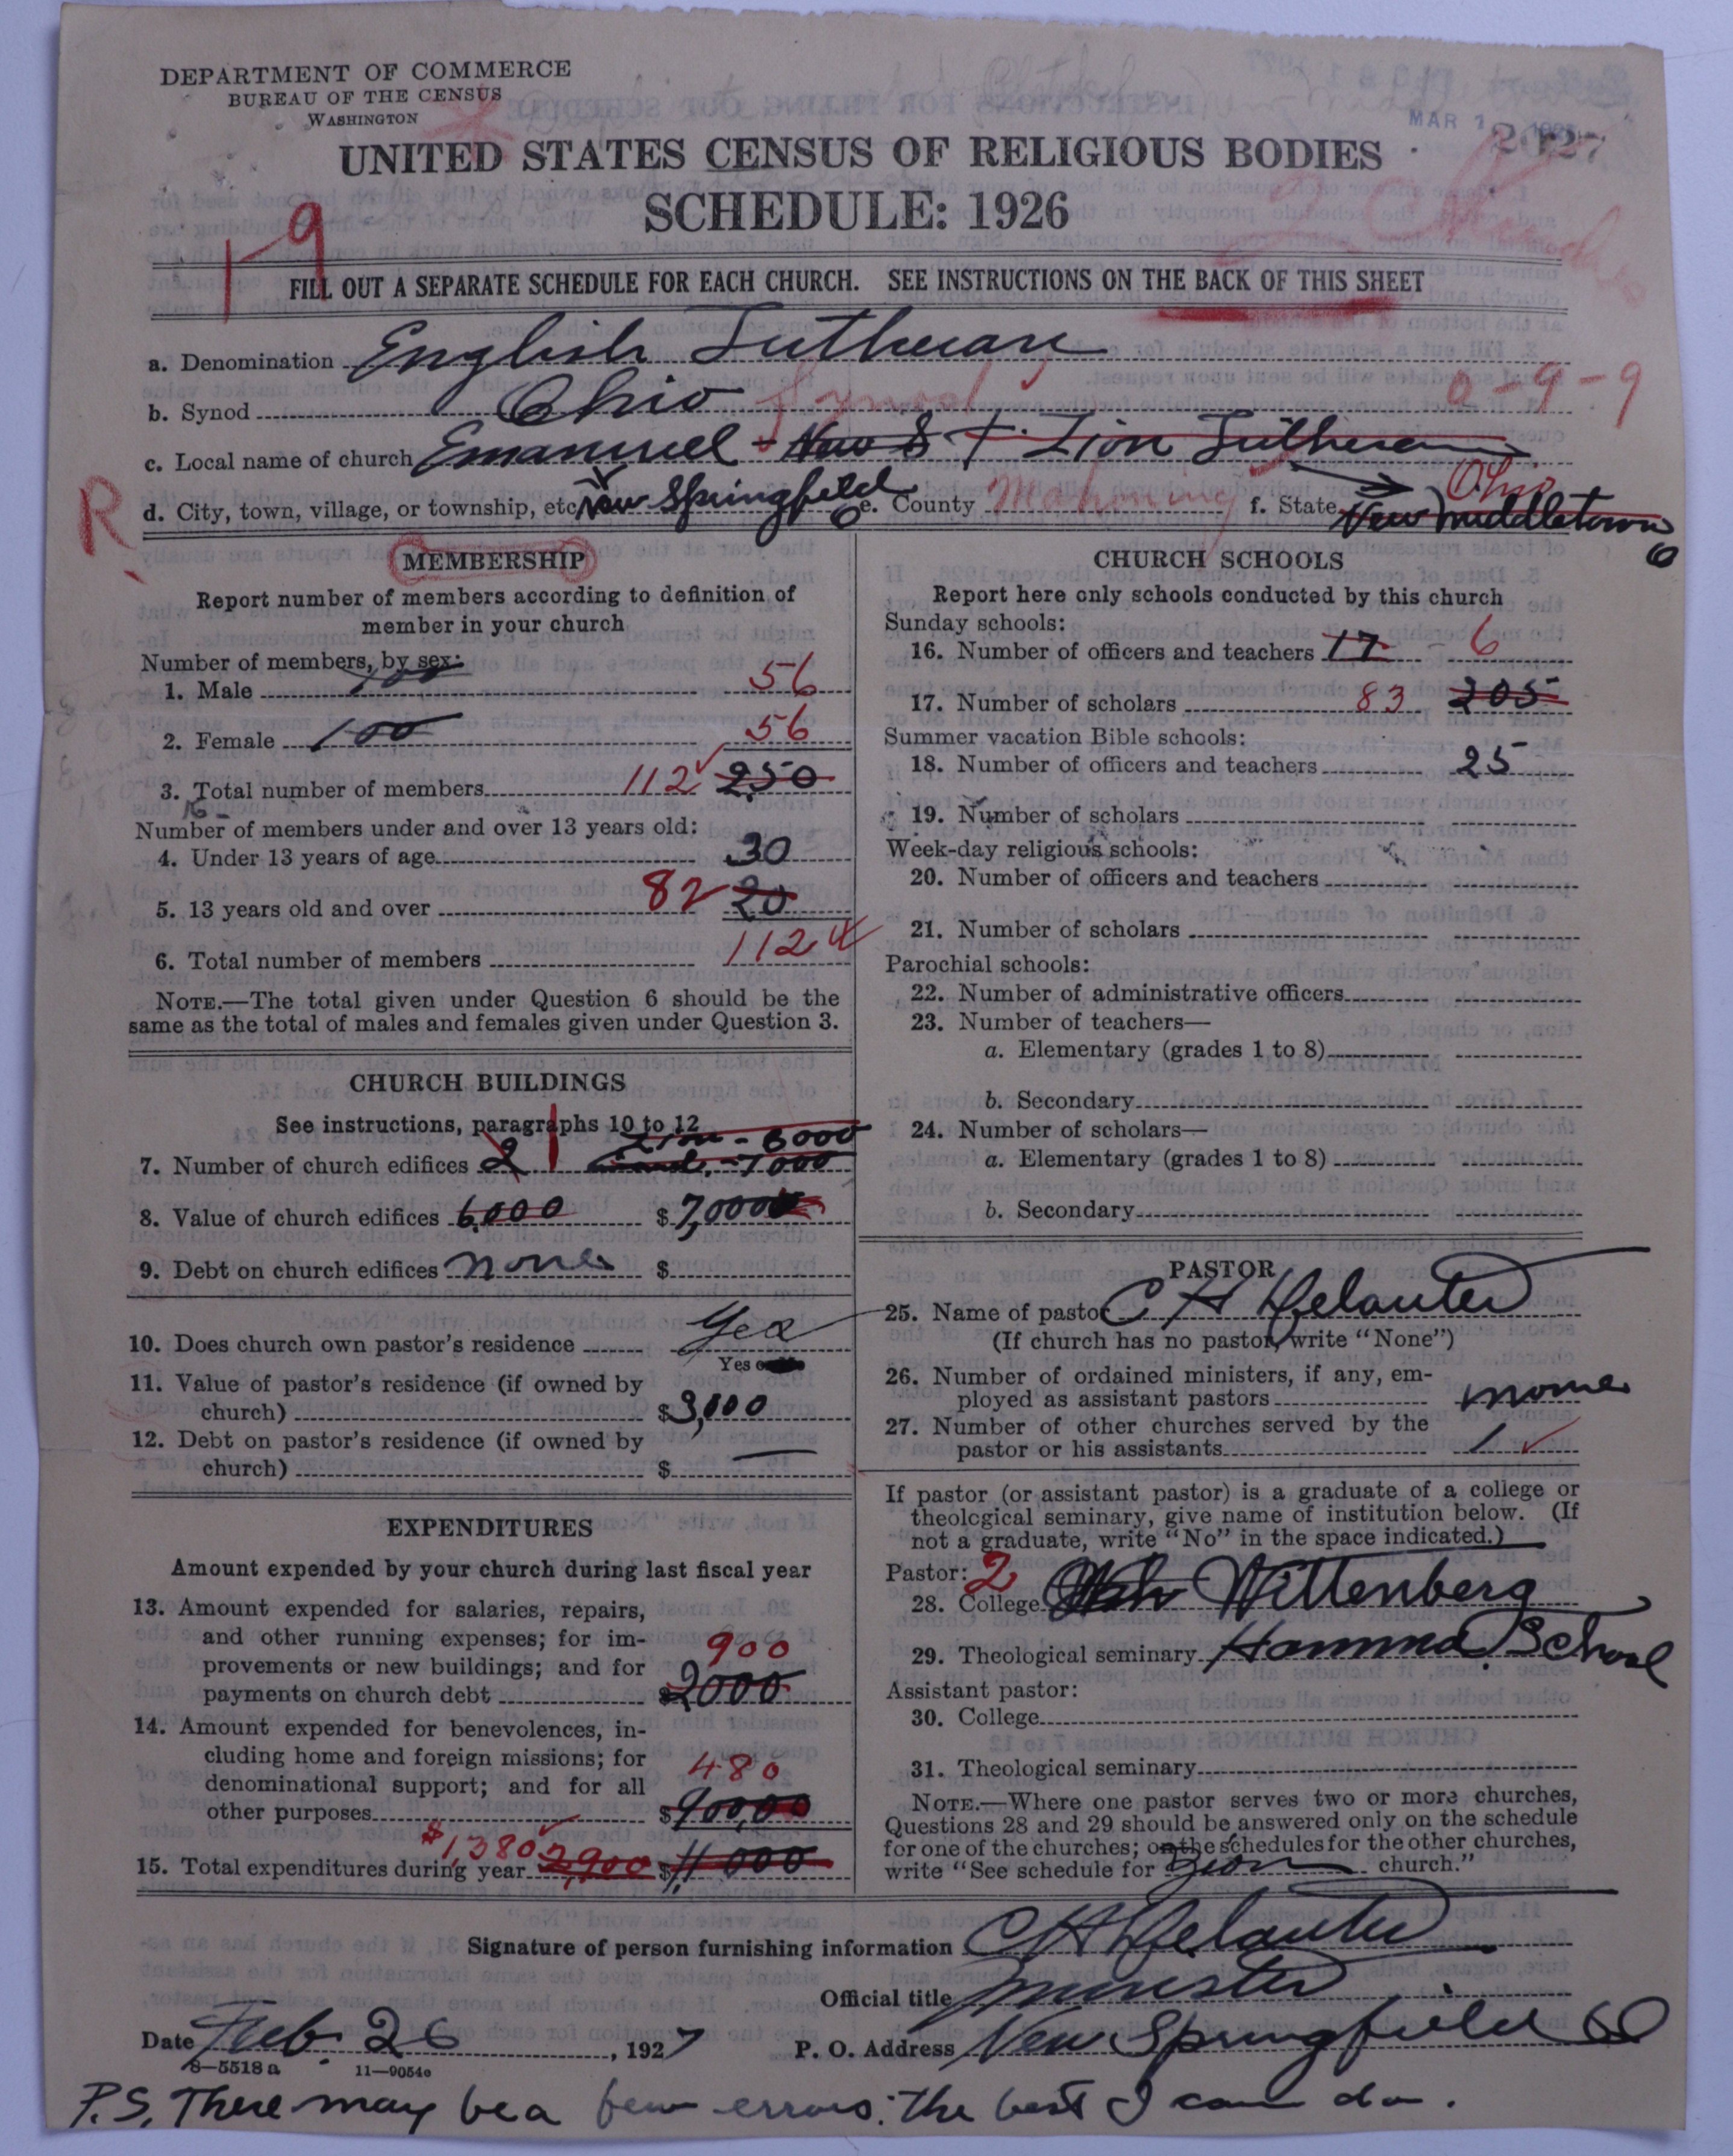 DEPARTMENT OF COMMERCE
BUREAU OF THE CENSUS
WASHINGTON
MAR 1
UNITED STATES CENSUS OF RELIGIOUS BODIES
SCHEDULE: 1926
1-9
FILL OUT A SEPARATE SCHEDULE FOR EACH CHURCH. SEE INSTRUCTIONS ON THE BACK OF THIS SHEET
a. Denomination English Lutheran
b. Synod Ohio Synod 0-9-9
c. Local name of church Emanuel - New S + Zion Lutheran
R
d. City, town, village, or township, etc. New Springfield O e. County Mahoning f. State Ohio New Middletown O
MEMBERSHIP
Report number of members according to definition of
member in your church
Number of members, by sex:
1. Male 100 56
2. Female 100 56
3. Total number of members 112 250
Number of members under and over 13 years old:
4. Under 13 years of age 30
5. 13 years old and over 82 20
6. Total number of members 112
NOTE.—The total given under Question 6 should be the
same as the total of males and females given under Question 3.
CHURCH BUILDINGS
See instructions, paragraphs 10 to 12
Zion - 6000
7. Number of church edifices 2 1 - 7000
8. Value of church edifices 6,000 $ 7,000
9. Debt on church edifices none $
10. Does church own pastor's residence Yes
Yes
11. Value of pastor's residence (if owned by
church) $ 3,000
12. Debt on pastor's residence (if owned by
church) $ —
EXPENDITURES
Amount expended by your church during last fiscal year
13. Amount expended for salaries, repairs,
and other running expenses; for im-
provements or new buildings; and for 900
payments on church debt $ 2000
14. Amount expended for benevolences, in-
cluding home and foreign missions; for
denominational support; and for all 480
other purposes $ 900,00
$1,380
15. Total expenditures during year 2,900 $ 11000
CHURCH SCHOOLS
Report here only schools conducted by this church
Sunday schools:
16. Number of officers and teachers 17 - 6
17. Number of scholars 83 205
Summer vacation Bible schools:
18. Number of officers and teachers 25
19. Number of scholars
Week-day religious schools:
20. Number of officers and teachers
21. Number of scholars
Parochial schools:
22. Number of administrative officers
23. Number of teachers—
a. Elementary (grades 1 to 8)
b. Secondary
24. Number of scholars—
a. Elementary (grades 1 to 8)
b. Secondary
PASTOR
25. Name of pastor C H Delauter
(If church has no pastor, write "None")
26. Number of ordained ministers, if any, em-
ployed as assistant pastors none
27. Number of other churches served by the
pastor or his assistants 1
If pastor (or assistant pastor) is a graduate of a college or
theological seminary, give name of institution below. (If
not a graduate, write "No" in the space indicated.)
Pastor: 2
28. College Wittenberg
29. Theological seminary Hamma School
Assistant pastor:
30. College
31. Theological seminary
NOTE.—Where one pastor serves two or more churches,
Questions 28 and 29 should be answered only on the schedule
for one of the churches; on the schedules for the other churches,
write "See schedule for Zion church."
Signature of person furnishing information C H Delauter
Official title Minister
Date Feb. 26, 1927 P. O. Address New Springfield O
8—5518a 11—9054c
P.S. There may be a few errors: the best I can do.